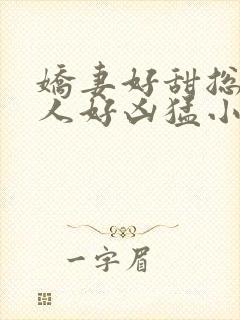 娇妻好甜总
人好凶猛小
一字眉